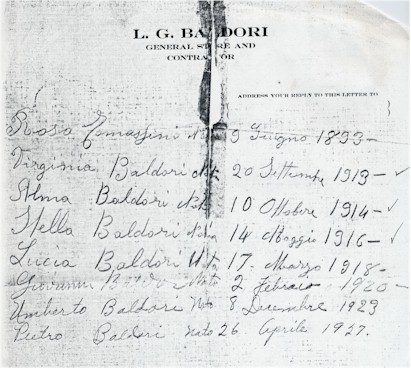 L. G. BALDORI
GENERAL STORE AND
CONTRACTOR
ADDRESS YOUR REPLY TO THIS LETTER TO
Rosa Tomassini Nata 9 Giugno 1893 –
Virginia Baldori Nata 20 Settembre 1913 – ✓
Alma Baldori Nata 10 Ottobre 1914 – ✓
Stella Baldori Nata 14 Maggio 1916 – ✓
Lucia Baldori Nata 17. Marzo 1918 –
Giovanni Nato 2 Febraio 1920 –
Umberto Baldori Nato 8 Decembre 1923
Pietro Baldori nato 26 Aprile 1927.